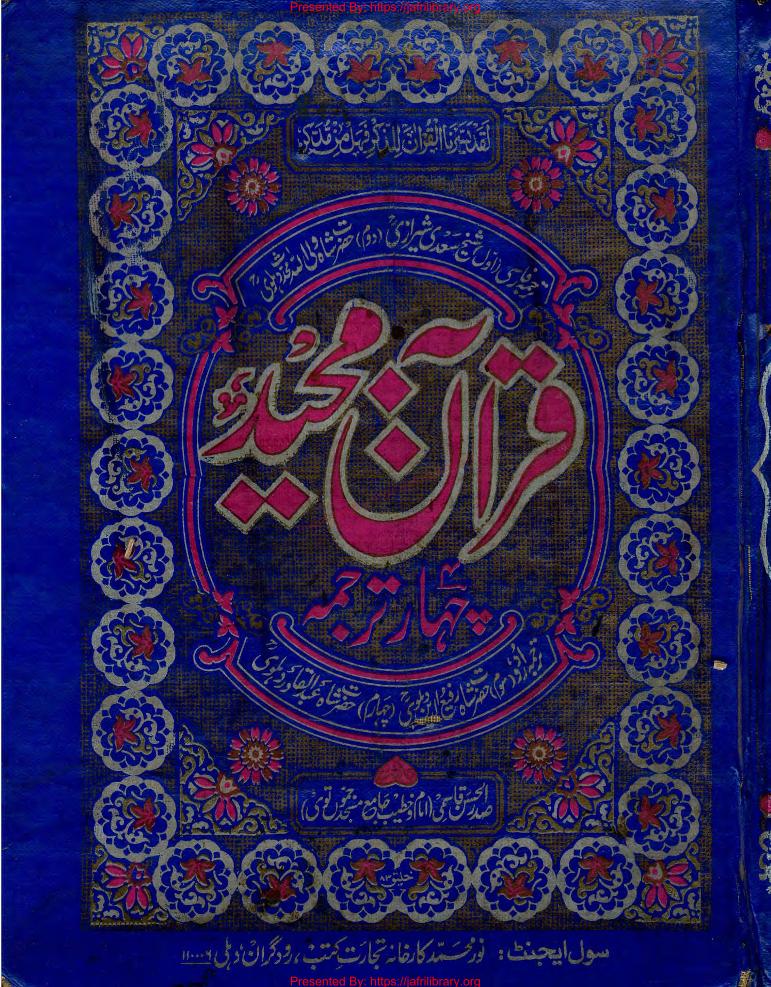 Presented By: https://jafrilibrary.org
لقد يسرنا القرآن للذكر فهل من مدكر
ترجمہ فارسی (اول) شیخ سعدی شیرازیؒ (دوم) حضرت شاہ ولی اللہ محدث دہلویؒ
قرآن مجید
چہار ترجمہ
ترجمہ اردو (سوم) حضرت شاہ رفیع الدین دہلویؒ (چہارم) حضرت شاہ عبدالقادر دہلویؒ
صدر الحسن قاسمی (امام و خطیب جامع مسجد
سول ایجنٹ: نور محمد کارخانہ تجارت کتب، رودگران دہلی ۱۱۰۰۰۶
Presented By: https://jafrilibrary.org